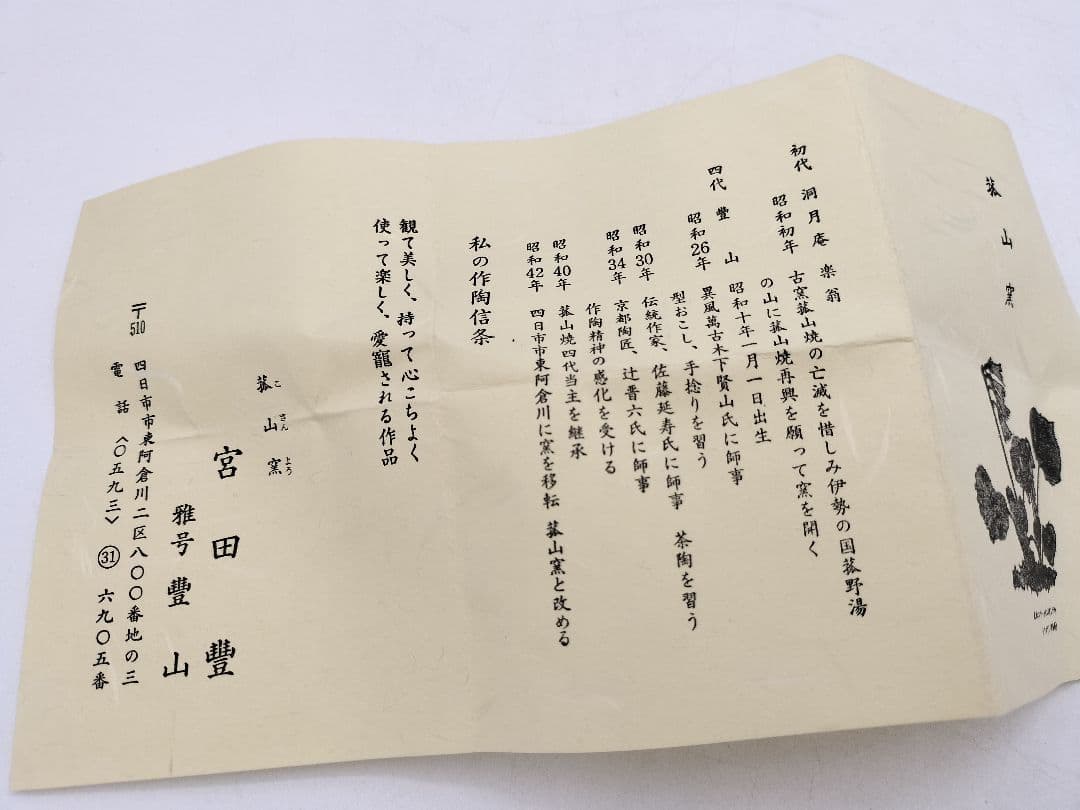 菰山窯
初代 洞月庵 楽翁
昭和初年 古窯菰山焼の亡滅を惜しみ伊勢の国菰野湯
の山に菰山焼再興を願って窯を開く
四代 豊山 昭和十年一月一日出生
昭和26年 異風萬古木下賢山氏に師事
型おこし、手捻りを習う
昭和30年 伝統作家、佐藤延寿氏に師事 茶陶を習う
昭和34年 京都陶匠、辻晋六氏に師事
作陶精神の感化を受ける
昭和40年 菰山焼四代当主を継承
昭和42年 四日市市東阿倉川に窯を移転 菰山窯と改める
私の作陶信条
観て美しく、持って心こちよく
使って楽しく、愛寵される作品
菰山窯
こさんよう
宮田豐
雅号豐山
〒510 四日市市東阿倉川二区八〇〇番地の三
電話〈〇五九三〉㉛六九〇五番